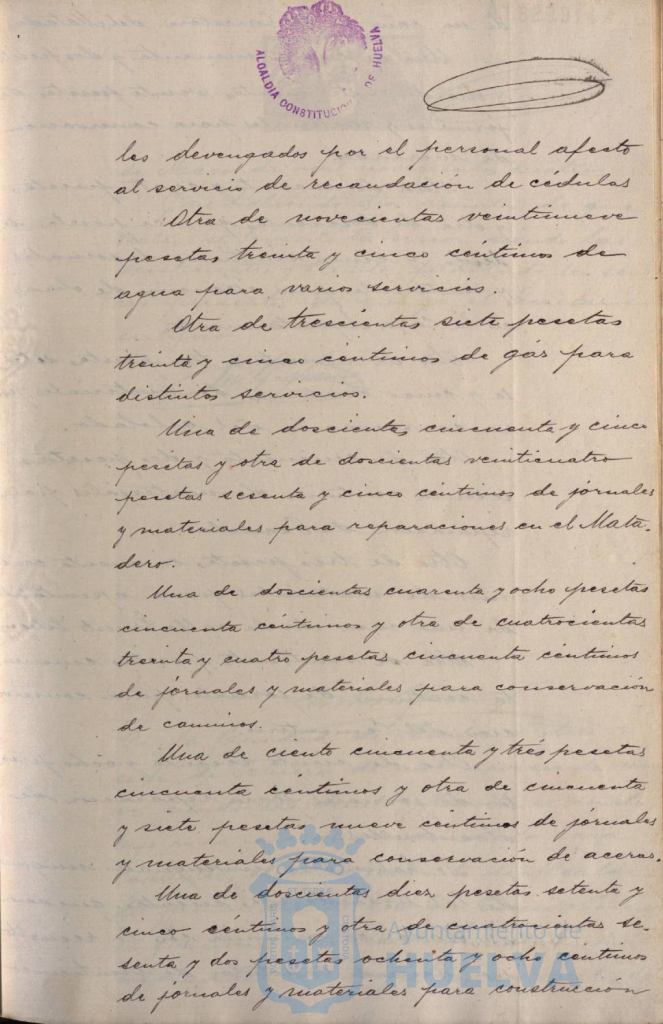 ALCALDIA CONSTITUCIONAL DE HUELVA
les devengados por el personal afecto
al servicio de recaudación de cédulas
Otra de novecientas veintinueve
pesetas treinta y cinco céntimos de
agua para varios servicios.
Otra de trescientas siete pesetas
treinta y cinco céntimos de gás para
distintos servicios.
Una de doscientas cincuenta y cinco
pesetas y otra de doscientas veinticuatro
pesetas sesenta y cinco céntimos de jórnales
y materiales para reparaciones en el Mata-
dero.
Una de doscientas cuarenta y ocho pesetas
cincuenta céntimos y otra de cuatrocientas
treinta y cuatro pesetas cincuenta céntimos
de jórnales y materiales para conservación
de caminos.
Una de ciento cincuenta y trés pesetas
cincuenta céntimos y otra de cincuenta
y siete pesetas nueve céntimos de jórnales
y materiales para conservación de aceras.
Una de doscientas diez pesetas setenta y
cinco céntimos y otra de cuatrocientas se-
senta y dos pesetas ochenta y ocho céntimos
de jornales y materiales para construcción
Ayuntamiento de
HUELVA